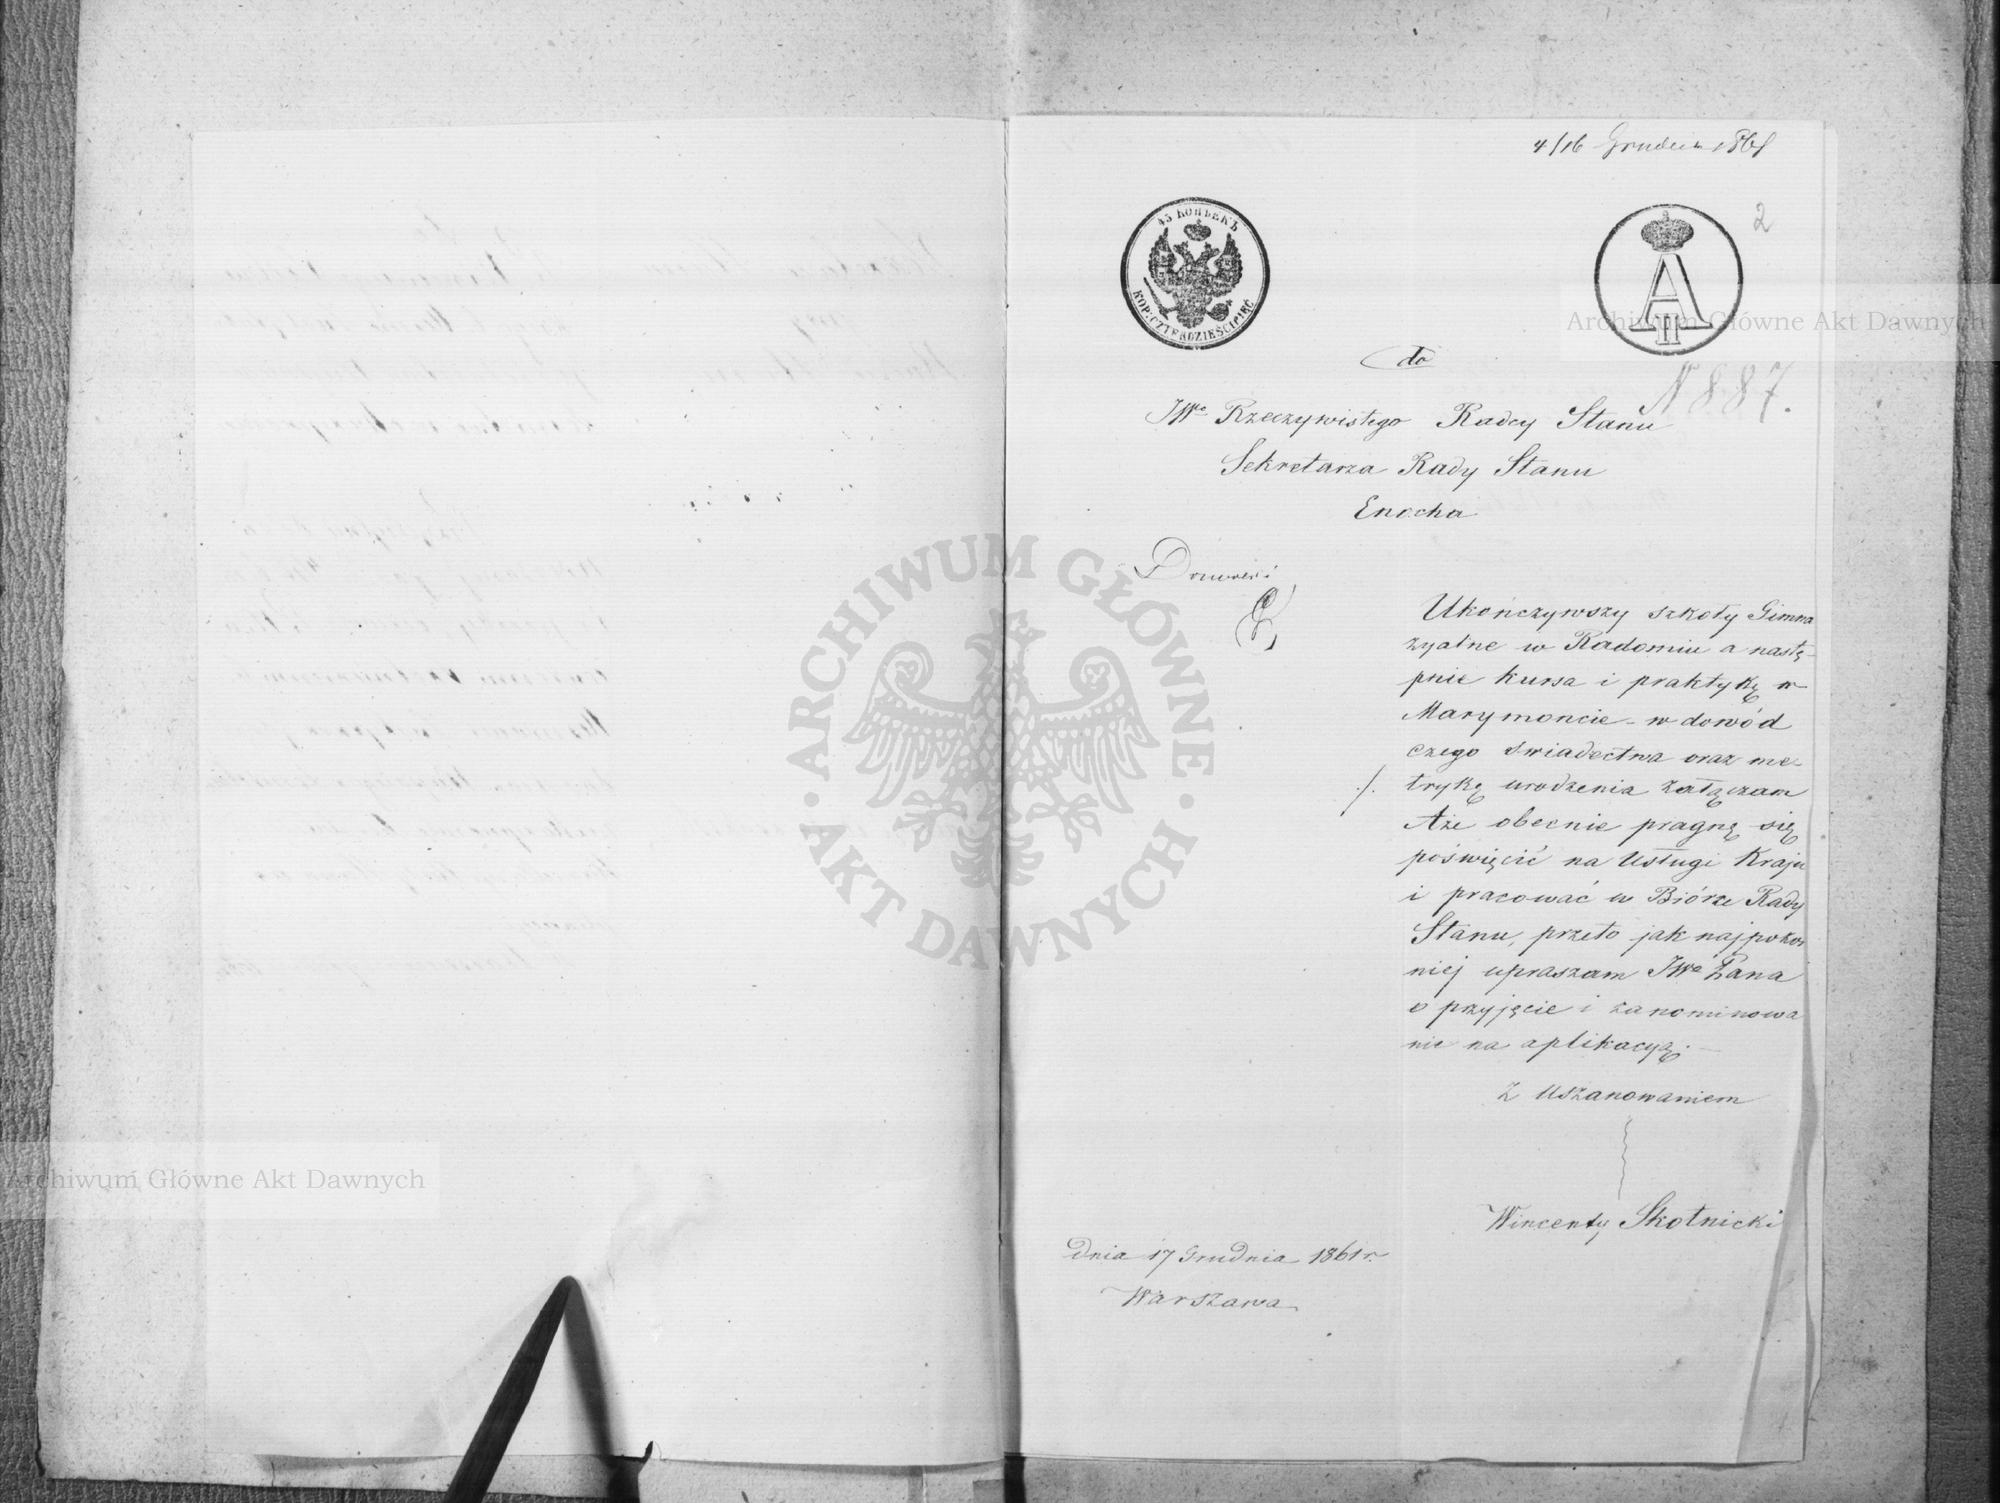 4/16 Grudnia 1861
45 КОПѢЕКЪ
KOP: CZTERDZIEŚCI PIĘĆ
A
II
2
N 887.
do
JWo Rzeczywistego Radcy Stanu
Sekretarza Rady Stanu
Enocha
Ukończywszy szkoły Gimna
zyalne w Radomiu a nastę-
pnie kursa i praktykę w
Marymoncie - w dowód
czego świadectwa oraz me-
./. trykę urodzenia załączam
Aże obecnie pragnę się
poświęcić na Usługi Kraju
i pracować w Biórze Rady
Stanu, przeto jak najpokor
niej upraszam JWo Pana
o przyjęcie i zanominowa
nie na aplikacyą. —
Z Uszanowaniem
Wincenty Skotnicki
Dnia 17 Grudnia 1861 r.
Warszawa
ARCHIWUM GŁÓWNE
AKT DAWNYCH
Archiwum Główne Akt Dawnych
Archiwum Główne Akt Dawnych